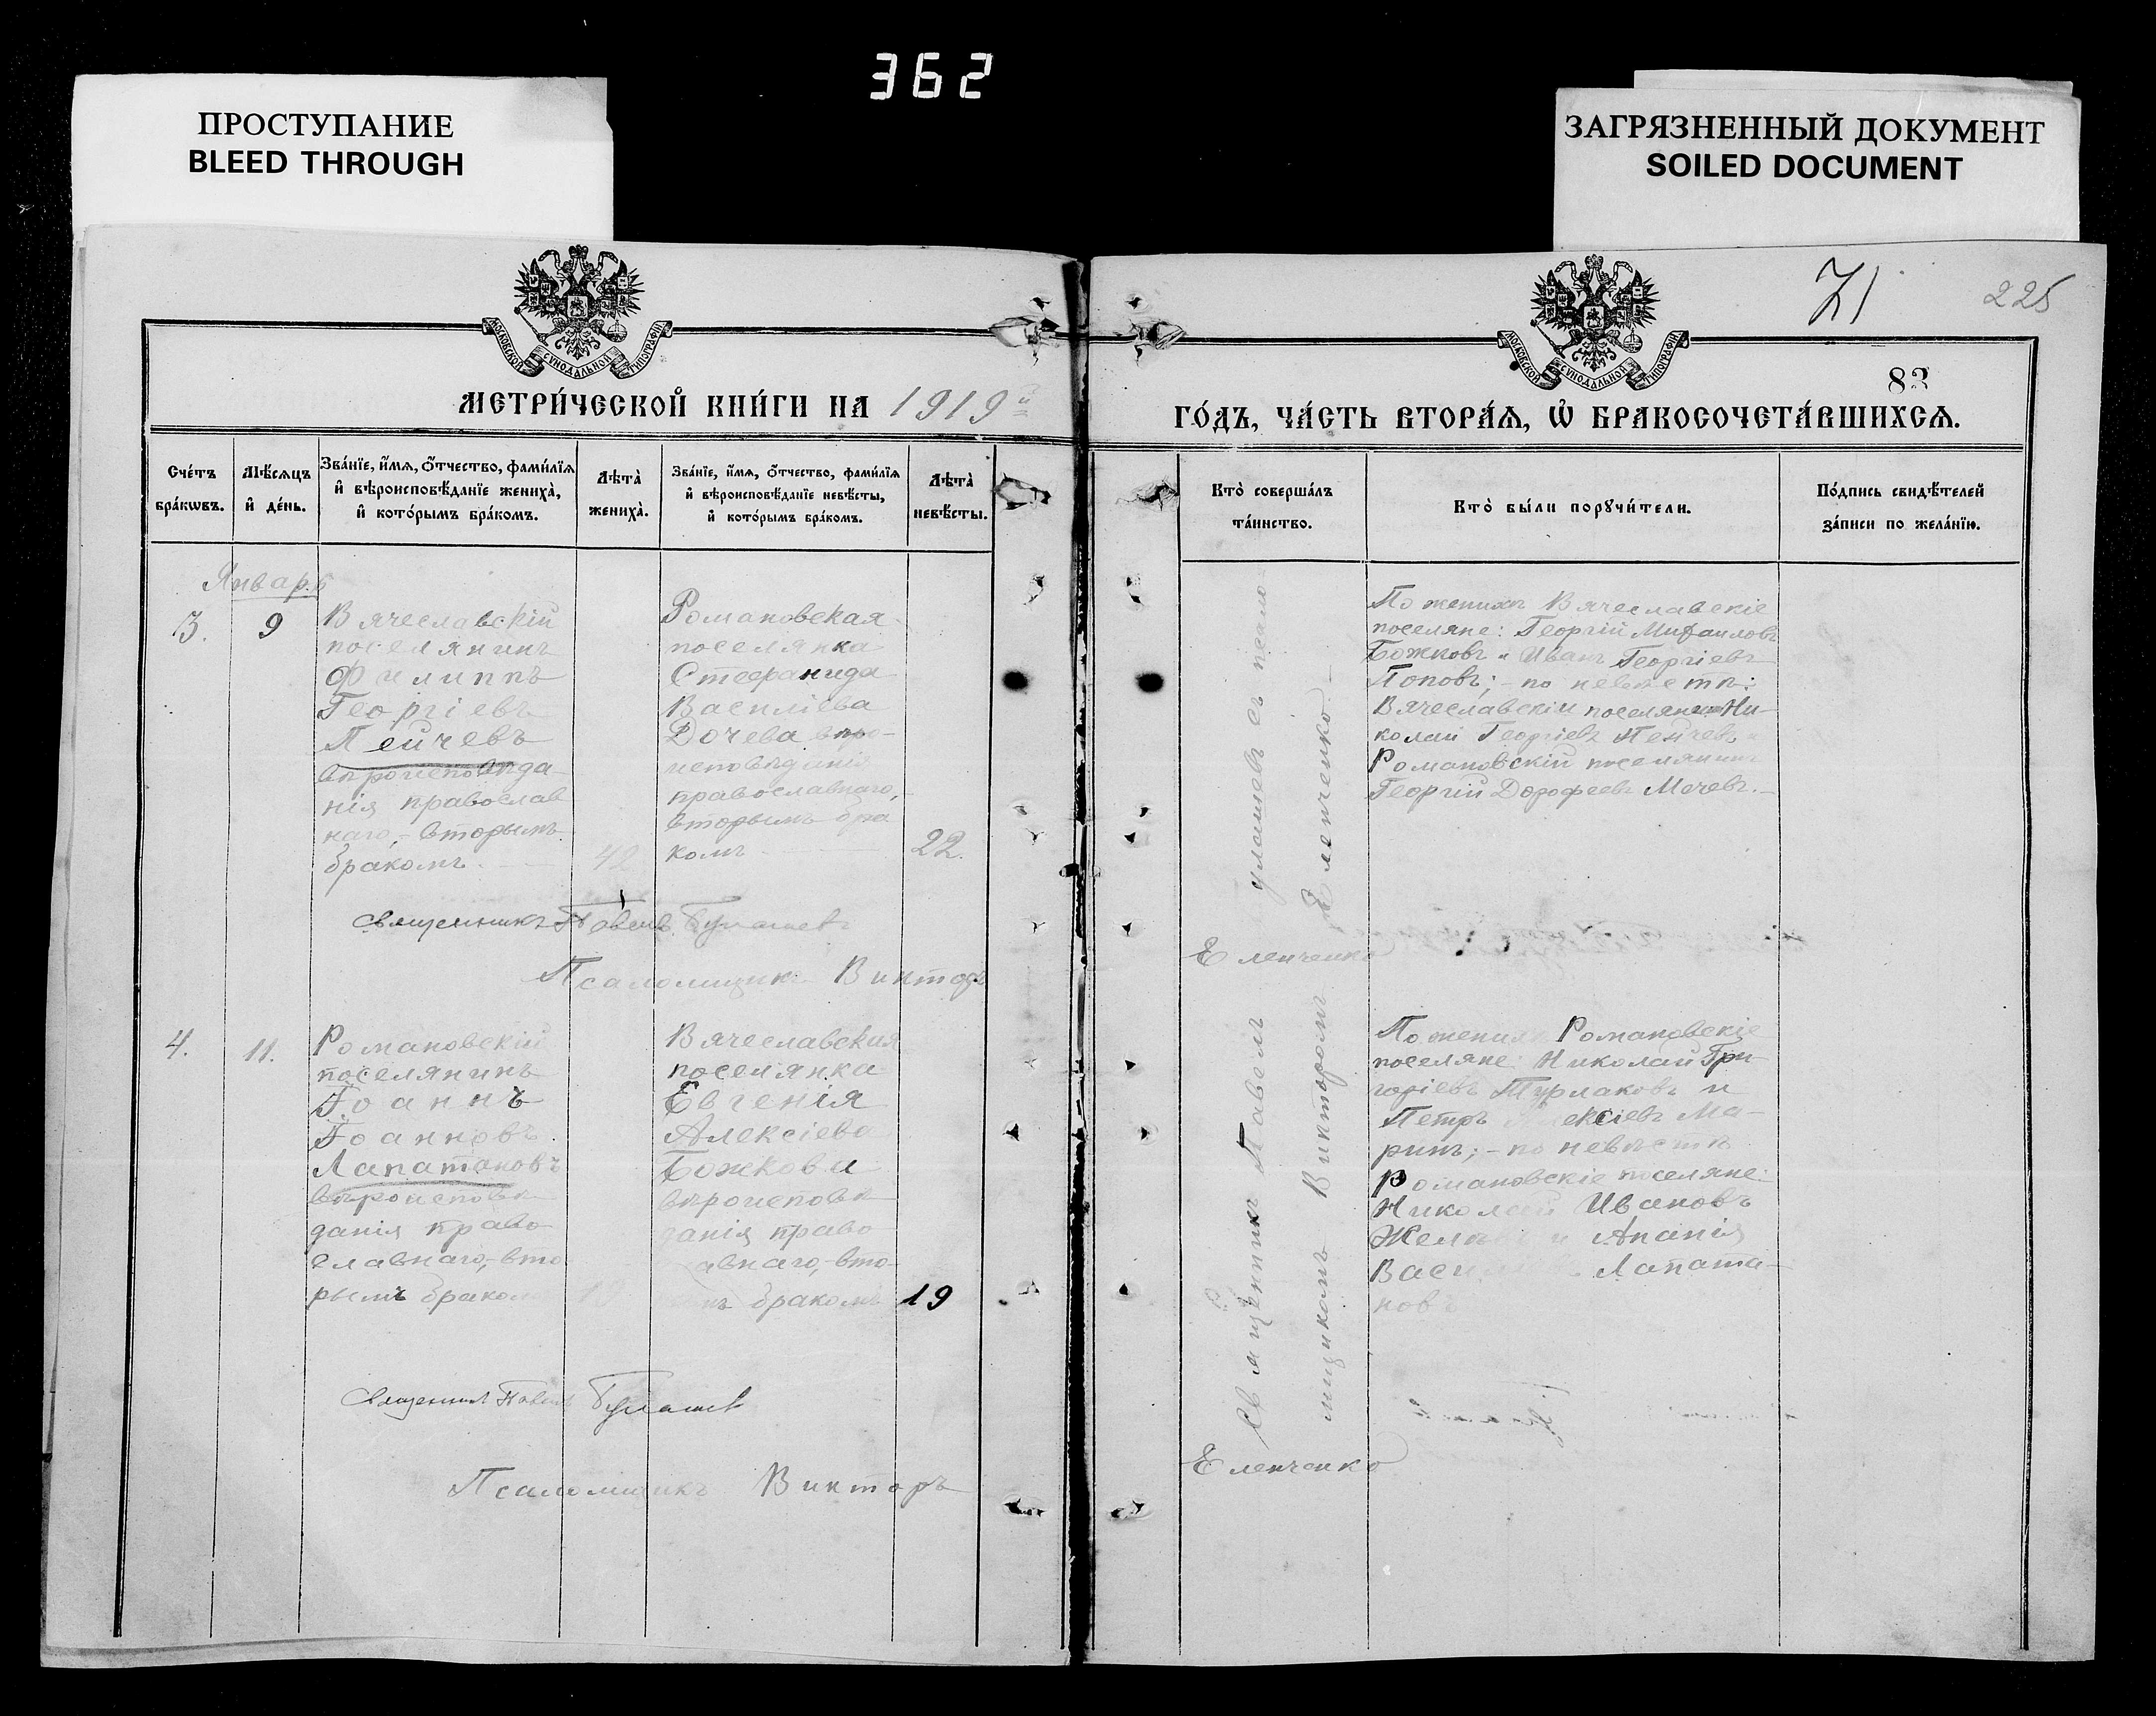 362
ПРОСТУПАНИЕ
BLEED THROUGH
ЗАГРЯЗНЕННЫЙ ДОКУМЕНТ
SOILED DOCUMENT
МОСКОВСКОЙ СУНОДАЛЬНОЙ ТИПОГРАФІИ
МОСКОВСКОЙ СУНОДАЛЬНОЙ ТИПОГРАФІИ
71
225
83
МЕТРИ́ЧЕСКОЙ КНИ́ГИ НА 1919й
ГО́ДЪ, ЧА́СТЬ ВТОРА́Ѧ, Ѡ҆ БРАКОСОЧЕТА́ВШИХСѦ.
Сче́тъ
бра́кѡвъ.
Мѣ́сяцъ
и҆ де́нь.
Зва́нїе, и҆́мѧ, ѻ҆́тчество, фами́лїѧ
и҆ вѣроисповѣ́данїе жениха̀,
и҆ кото́рымъ бра́комъ.
Лѣта̀
жениха̀.
Зва́нїе, и҆́мѧ, ѻ҆́тчество, фами́лїѧ
и҆ вѣроисповѣ́данїе невѣ́сты,
и҆ кото́рымъ бра́комъ.
Лѣта̀
невѣ́сты.
Кто̀ соверша́лъ
та́инство.
Кто̀ бы́ли порꙋчи́тели.
По́дпись свидѣ́телей
за́писи по жела́нїю.
Январь
3.
9
Вячеславскій
поселянинъ
Филиппъ
Георгіевъ
Пейчевъ
вѣроисповѣда-
нія православ
наго,- вторымъ
бракомъ.
42
Романовская
поселянка
Стефанида
Василіева
Дочева вѣро-
исповѣданія
православнаго,-
вторымъ бра
комъ
22.
По женихѣ Вячеславскіе
поселяне: Георгій Михаиловъ
Божковъ и Иванъ Георгіевъ
Поповъ; - по невѣстѣ:
Вячеславскій поселянинъ Ни-
колай Георгіевъ Пейчевъ и
Романовскій поселянинъ
Георгій Дорофеевъ Мечевъ.-
Священникъ Павелъ
Псаломщикъ Викторъ
Еленченко
4.
11.
Романовскій
поселянинъ
Іоаннъ
Іоанновъ
Лапатановъ
вѣроисповѣ
данія право
славнаго,- вто
рымъ браком
Вячеславская
поселянка
Евгенія
Алексіева
Божкова
вѣроисповѣ
данія право
авнаго,- вто-
мъ бракомъ
19
По женихѣ Романовскіе
поселяне: Николай Гри
горіевъ Турлаковъ и
Петръ Алексіевъ Ма-
ринъ; - по невѣстѣ
Романовскіе поселяне:
Николай Ивановъ
и Ананія
Лапата-
новъ
Священникъ Павелъ
съ псало
мщикомъ Викторомъ Еленченко.
Священникъ Павелъ
Псаломщикъ Викторъ
Еленченко